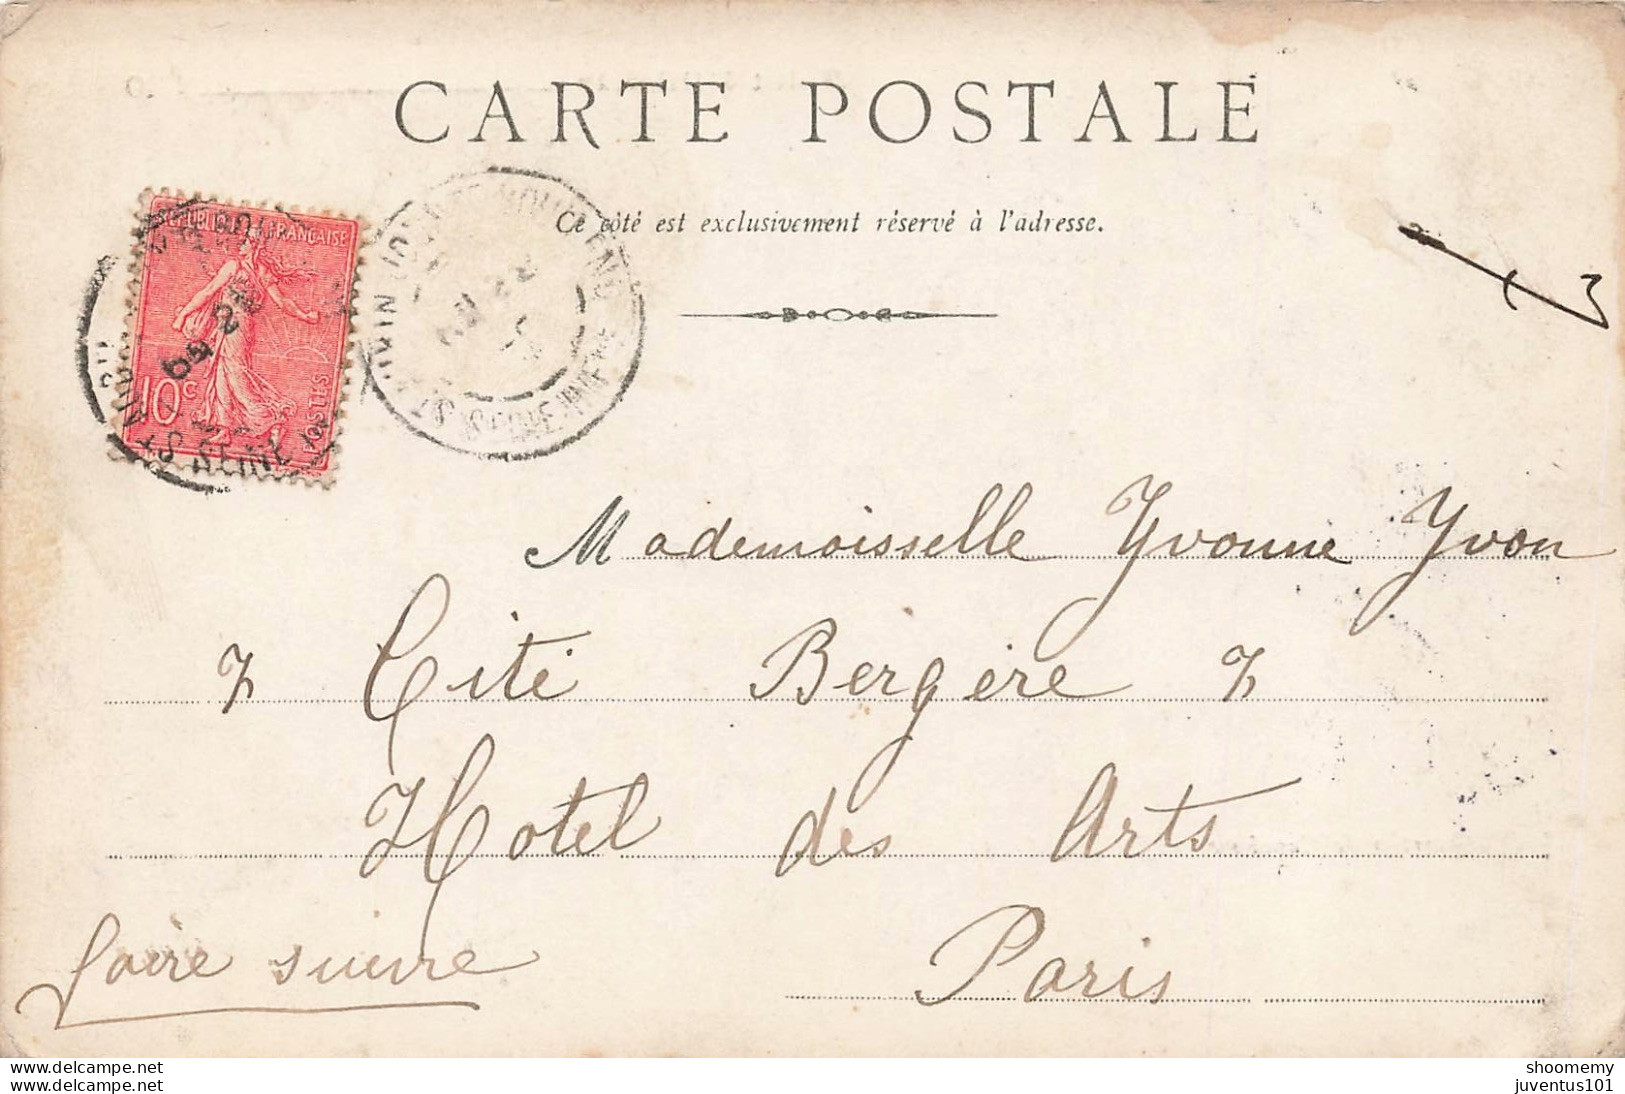 CARTE POSTALE
Ce côté est exclusivement réservé à l'adresse.
REPUBLIQUE FRANÇAISE
10 c
POSTES
ST AUBIN
S SEINE
Mademoisselle Yvonne Yvon
7 Cité Bergère 7
Hotel des Arts
Paris
faire suivre
shoomemy
juventus101